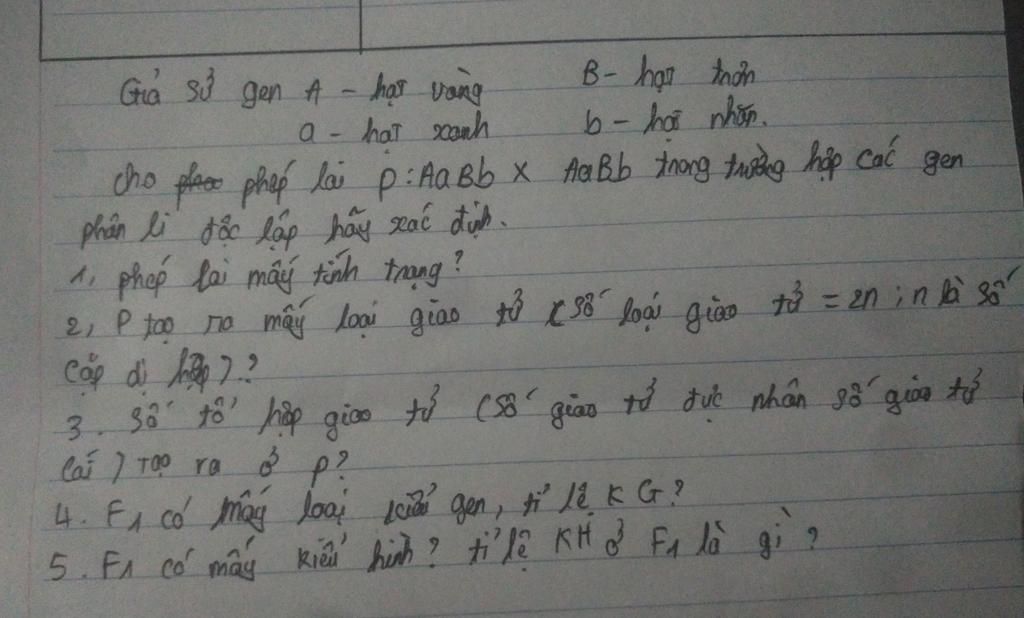 Giả sử gen A - hạt vàng B - hạt trơn
a - hạt xanh b - hạt nhăn.
cho phép lai P: AaBb x AaBb trong trường hợp các gen
phân li độc lập hãy xác định.
1, phép lai mấy tính trạng?
2, P tạo ra mấy loại giao tử (số loại giao tử = 2n; n là số
cặp dị hợp)?
3. Số tổ hợp giao tử (số giao tử đực nhân số giao tử
cái) tạo ra ở P?
4. F1 có mấy loại kiểu gen, tỉ lệ KG?
5. F1 có mấy kiểu hình? tỉ lệ KH ở F1 là gì?